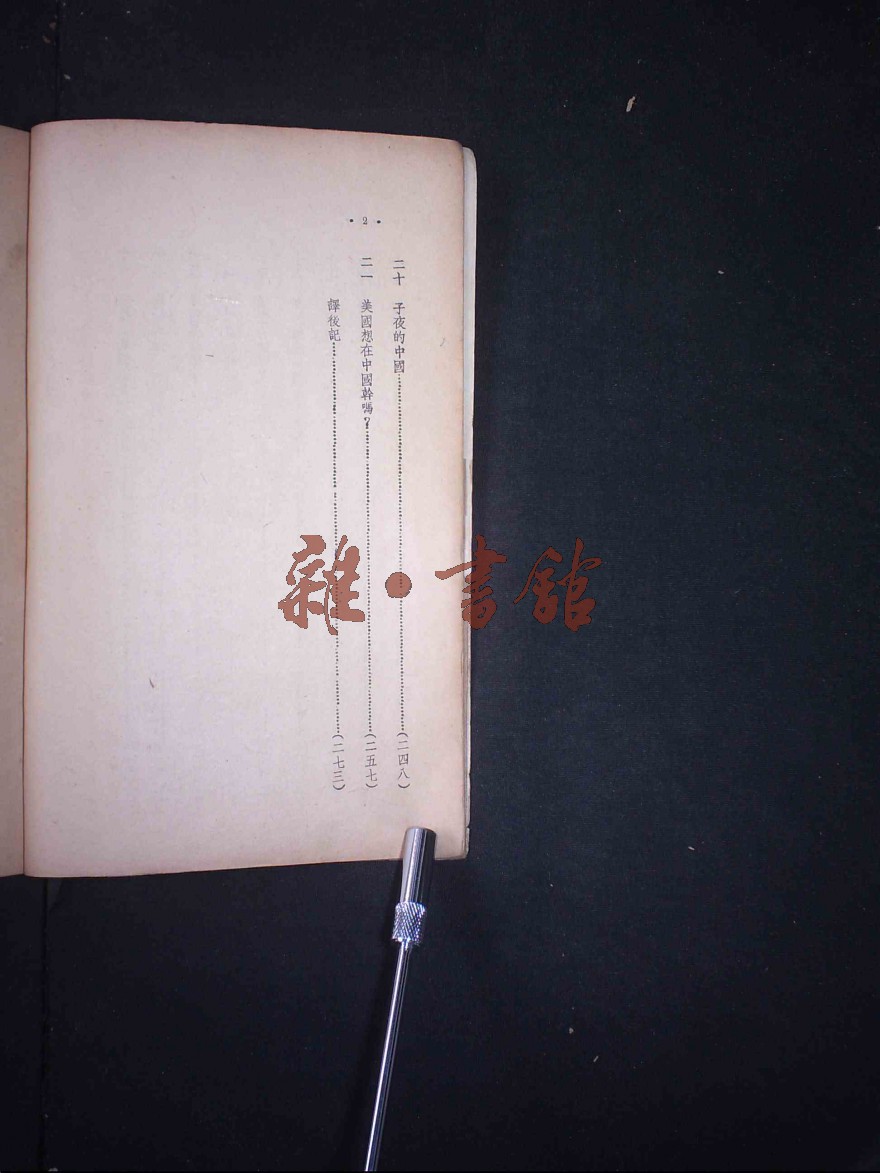 • 2 •
二十 子夜的中國……(二四八)
二一 美國想在中國幹嗎？……(二五七)
譯後記……(二七三)
雜•書館